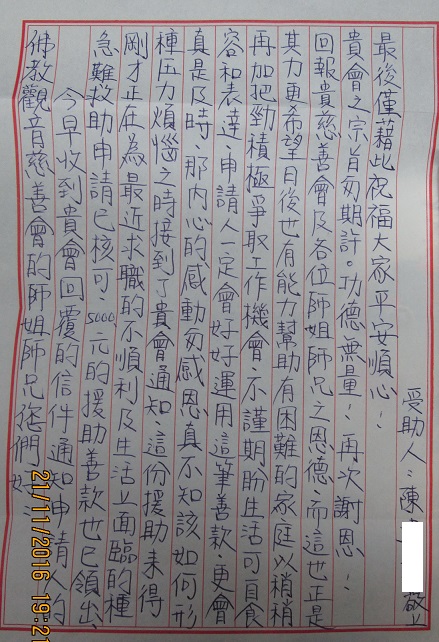 佛教觀音慈善會的師姐師兄您們好：
今早收到貴會回覆的信件通知申請人的
急難救助申請已核可，5000元的援助善款也已領出，
剛才正在為最近求職的不順利及生活上面臨的種
種压力煩惱之時接到了貴會通知，這份援助來得
真是及時，那內心的感動匆感恩真不知該如何形
容和表達，申請人一定會好好運用這筆善款，更會
再加把勁積極爭取工作機會，不謹期盼生活可自食
其力更希望日後也有能力幫助有困難的家庭以稍稍
回報貴慈善會及各位師姐師兄之恩德，而這也正是
貴會之宗旨匆期許。功德無量！再次謝恩！
最後僅藉此祝福大家平安順心！
受助人：陳 敬上
21/11/2016 19:2